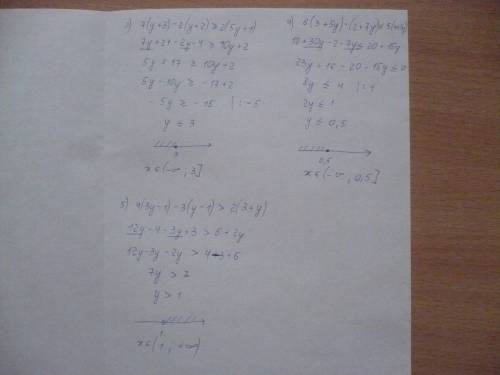 3) 7(y+3)-2(y+2) ≥ 2(5y+1)
7y+21-2y-4 ≥ 10y+2
5y+17 ≥ 10y+2
5y-10y ≥ -17+2
-5y ≥ -15 |:-5
y ≤ 3
3
x∈(-∞; 3]
4) 6(3+5y)-(2+7y)≤5(4+3y)
18+30y-2-7y≤20+15y
23y+16-20-15y≤0
8y ≤ 4 |:4
2y ≤ 1
y ≤ 0,5
0,5
x∈(-∞; 0,5]
5) 4(3y-1)-3(y-1) > 2(3+y)
12y-4-3y+3 > 6+2y
12y-3y-2y > 4-3+6
7y > 7
y > 1
1
x∈(1; +∞)